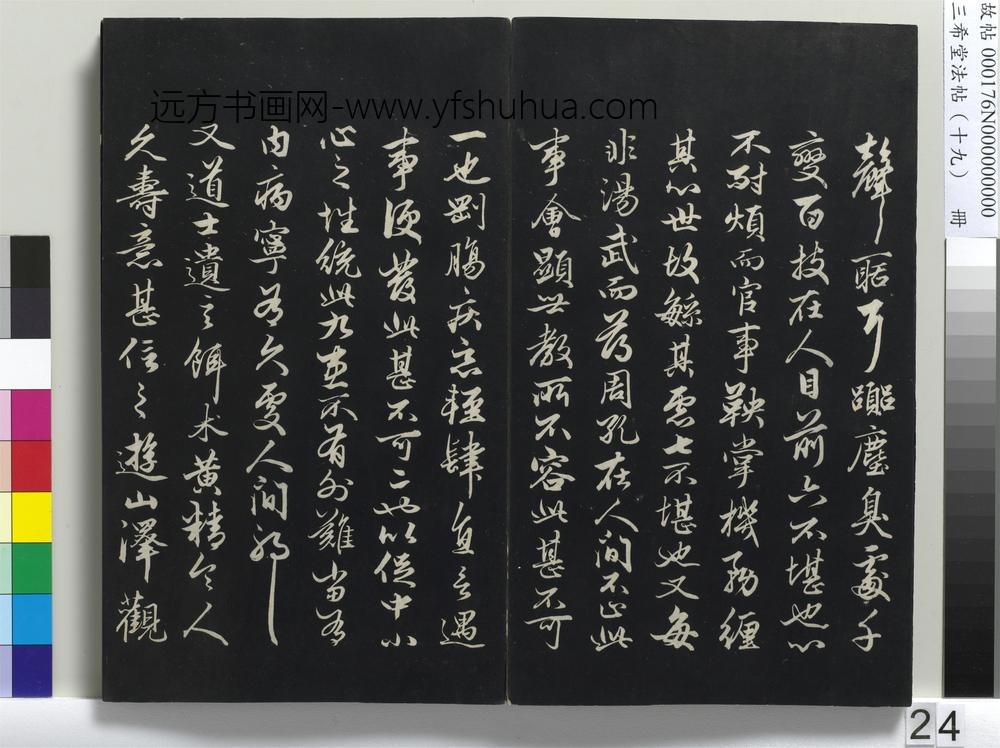 聲聒耳囂塵臭處千
變百技在人目前六不堪也心
不耐煩而官事鞅掌機務纏
其心世故緐其慮七不堪也又每
非湯武而薄周孔在人間不止此
事會顯世教所不容此甚不可
一也剛腸疾惡輕肆直言遇
事便發此甚不可二也以促中小
心之性統此九患不有外難當有
內病寧有久處人間邪
又道士遺言餌朮黃精令人
久壽意甚信之遊山澤觀
远方书画网-www.yfshuhua.com
故帖 000176N000000000
三希堂法帖（十九） 冊
24